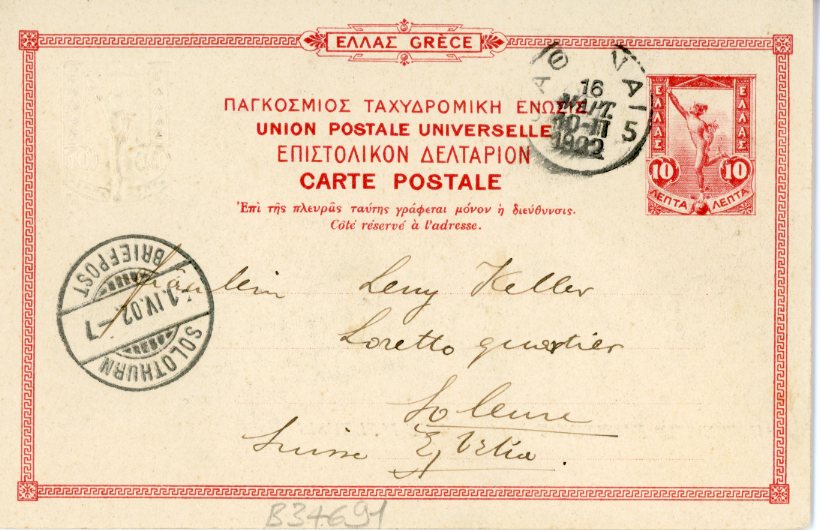 ΕΛΛΑΣ GRÈCE
ΠΑΓΚΟΣΜΙΟΣ ΤΑΧΥΔΡΟΜΙΚΗ ΕΝΩΣΙΣ
UNION POSTALE UNIVERSELLE
ΕΠΙΣΤΟΛΙΚΟΝ ΔΕΛΤΑΡΙΟΝ
CARTE POSTALE
Ἐπὶ τῆς πλευρᾶς ταύτης γράφεται μόνον ἡ διεύθυνσις.
Côté réservé à l'adresse.
ΑΘ ΝΑΙ 5
16
ΜΑΡΤ.
10-11
1902
ΕΛΛΑΣ ΕΛΛΑΣ
10 10
ΛΕΠΤΑ ΛΕΠΤΑ
BRIEFPOST
1.IV.02.-7
SOLOTHURN
Fräulein Leny Keller
Loretto quartier
Soleure
Suisse
B34691